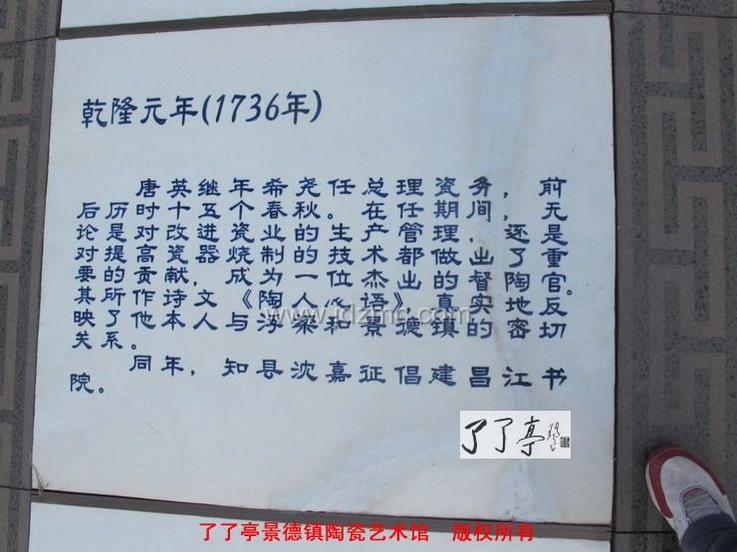 乾隆元年(1736年)
唐英继年希尧任总理瓷务，前
后历时十五个春秋。在任期间，无
论是对改进瓷业的生产管理，还是
对提高瓷器烧制的技术都做出了重
要的贡献，成为一位杰出的督陶官。
其所作诗文《陶人心语》，真实地反
映了他本人与浮梁和景德镇的密切
关系。
同年，知县沈嘉征倡建昌江书
院。
www.jdzmc.com
了了亭
了了亭景德镇陶瓷艺术馆 版权所有